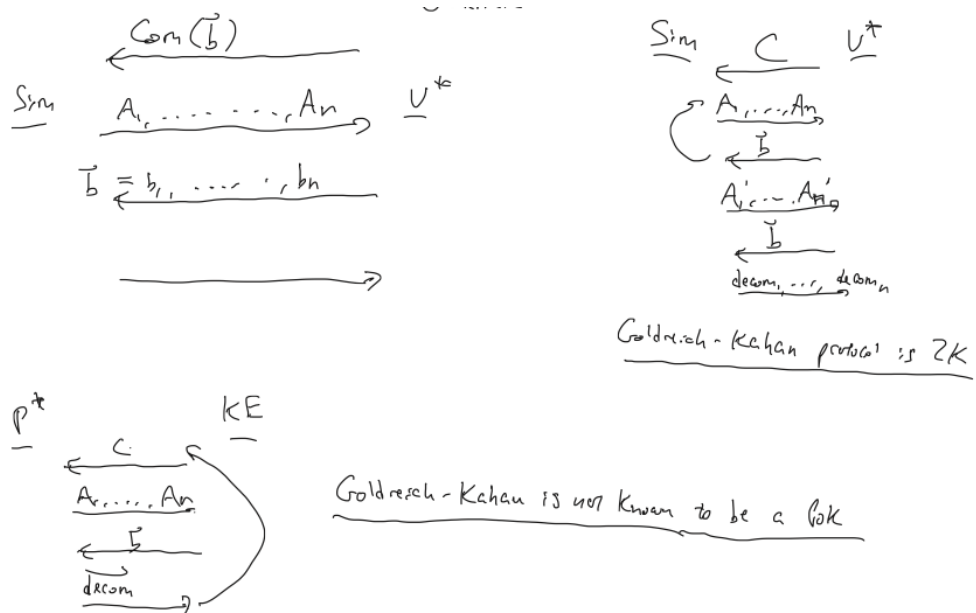 Com(b⃗)
Sim A₁, . . . . . . ., Aₙ V*
b⃗ = b₁, . . . . . ., bₙ
Sim C V*
A₁, . . ., Aₙ
b⃗
A₁', . . . Aₙ'
b⃗
decom₁, . . ., decomₙ
Goldreich-Kahan protocol is ZK
P* KE
C
A₁, . . . ., Aₙ
b⃗
decom
Goldreich-Kahan is not known to be a PoK